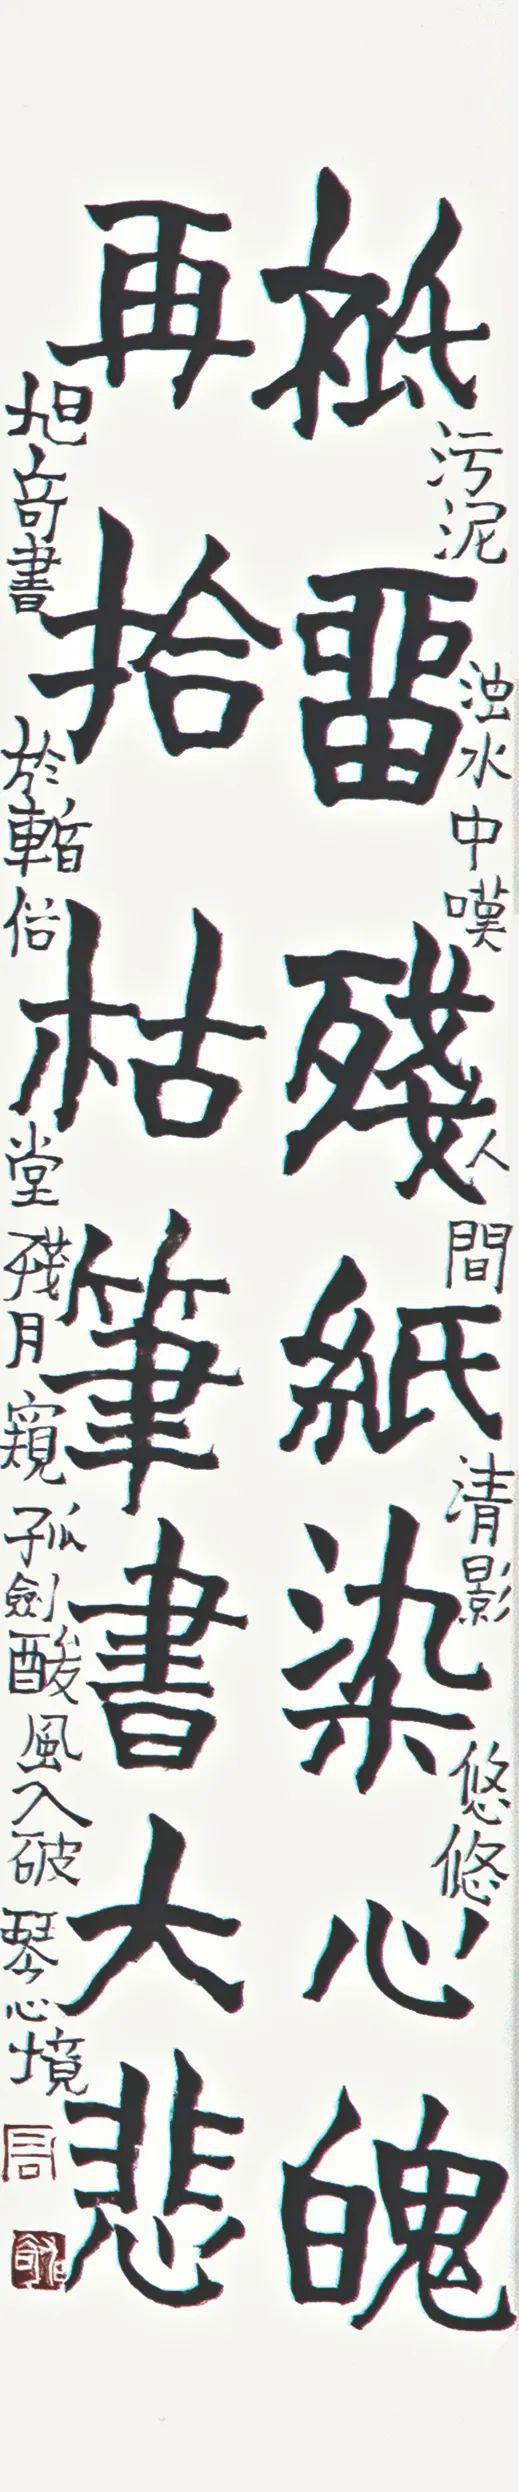 污泥浊水中嘆人間清影悠悠
祗留殘紙染心魄
再拾枯筆書大悲
旭奇書於暫俗堂殘月窺孤劍酸風入破琴心境